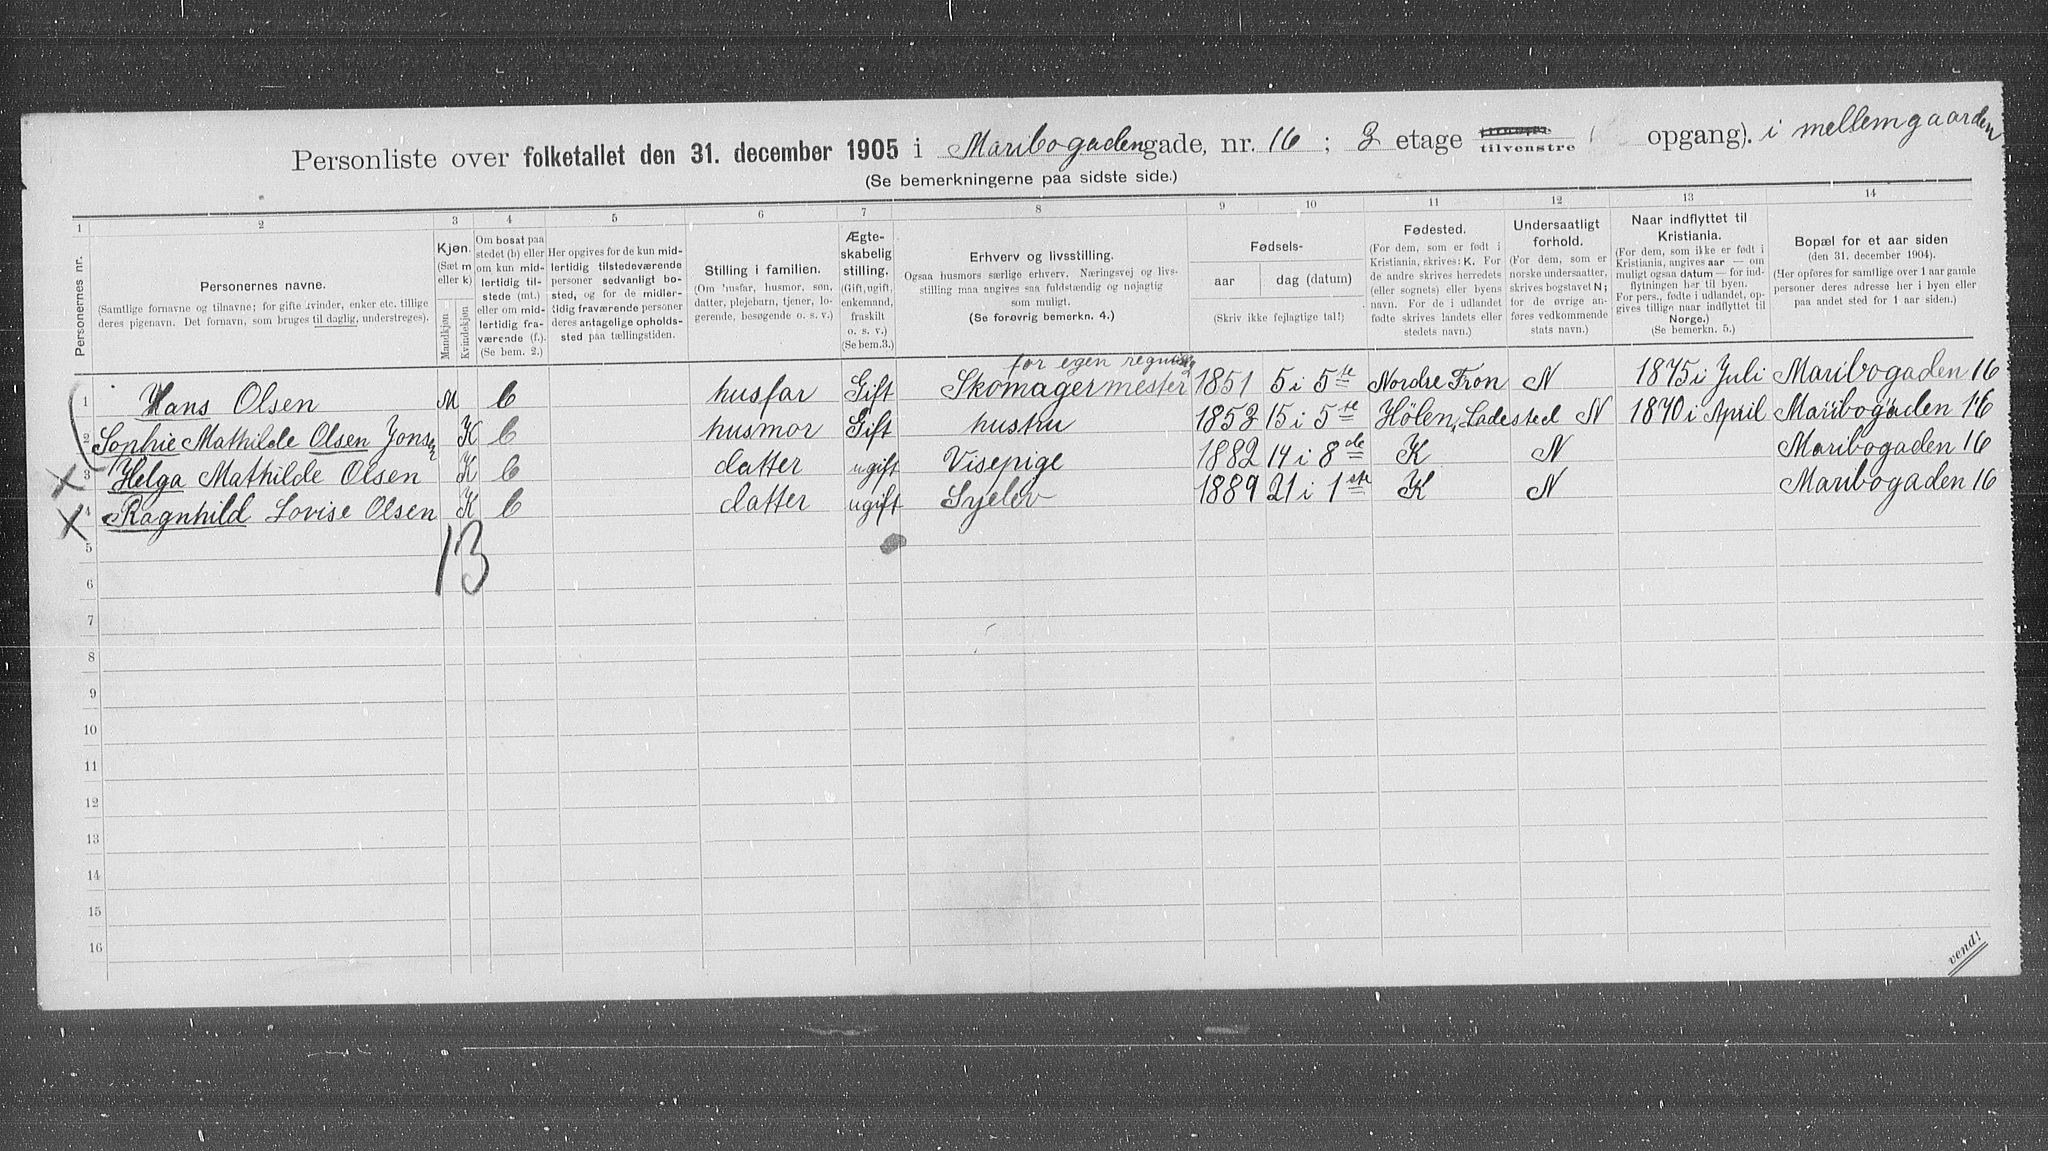 Personliste over folketallet den 31. december 1905 i Maribogaden gade, nr. 16 ; 2 etage tilvenstre opgang). i mellemgaarden
(Se bemerkningerne paa sidste side.)
1 2 3 4 5 6 7 8 9 10 11 12 13 14
Personernes nr.
Personernes navne.
(Samtlige fornavne og tilnavne; for gifte kvinder, enker etc. tillige
deres pigenavn. Det fornavn, som bruges til daglig, understreges).
Kjøn.
(Sæt m
eller k)
Mandkjøn
Kvindekjøn
Om bosat paa
stedet (b) eller
om kun mid-
lertidig til-
stede (mt.)
eller om mid-
lertidig fra-
værende (f.).
(Se bem. 2.)
Her opgives for de kun mid-
lertidig tilstedeværende
personer sedvanligt bo-
sted, og for de midler-
tidig fraværende personer
deres antagelige opholds-
sted paa tællingstiden.
Stilling i familien.
(Om husfar, husmor, søn,
datter, plejebarn, tjener, lo-
gerende, besøgende o. s. v.)
Ægte-
skabelig
stilling.
(Gift, ugift,
enkemand,
fraskilt
o. s. v.)
(Se bem.3.)
Erhverv og livsstilling.
Ogsaa husmors særlige erhverv. Næringsvej og livs-
stilling maa angives saa fuldstændig og nøjagtig
som muligt.
(Se forøvrig bemerkn. 4.)
Fødsels-
aar dag (datum)
(Skriv ikke fejlagtige tal!)
Fødested.
(For dem, som er født i
Kristiania, skrives: K. For
de andre skrives herredets
(eller sognets) eller byens
navn. For de i udlandet
fødte skrives landets eller
stedets navn.)
Undersaatligt
forhold.
(For dem, som er
norske undersaatter,
skrives bogstavet N;
for de øvrige an-
føres vedkommende
stats navn.)
Naar indflyttet til
Kristiania.
(For dem, som ikke er født i
Kristiania, angives aar — om
muligt ogsaa datum — for ind-
flytningen her til byen.
For pers., fødte i udlandet, op-
gives tillige naar indflyttet til
Norge.)
(Se bemerkn. 5.)
Bopæl for et aar siden
(den 31. december 1904).
(Her opføres for samtlige over 1 aar gamle
personer deres adresse her i byen eller
paa andet sted for 1 aar siden.)
for egen regning
1 Hans Olsen M b husfar Gift Skomagermester 1851 5 i 5te Nordre Fron N 1875 i Juli Maribogaden 16
2 Sophie Mathilde Olsen Jonsen K b husmor Gift hustru 1852 15 i 5te Hølen, Ladested N 1870 i April Maribogaden 16
3 Helga Mathilde Olsen K b datter ugift Visepige 1882 14 i 8de K N Maribogaden 16
4 Ragnhild Lovise Olsen K b datter ugift Syelev 1889 21 i 1ste K N Maribogaden 16
13
5
6
7
8
9
10
11
12
13
14
15
16
vend!